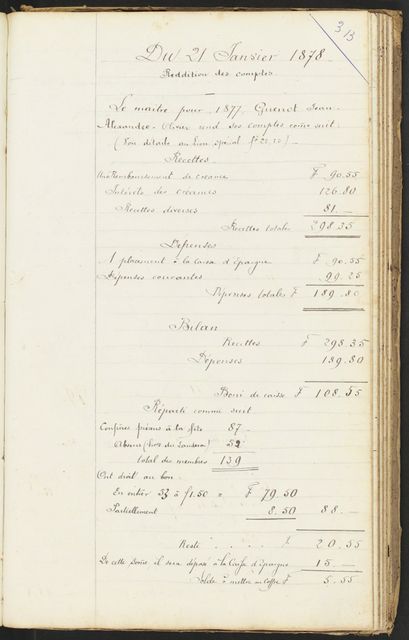 313
Du 21 Janvier 1878
Reddition des comptes
Le maître pour 1877, Guenot Jean-
Alexandre-Olivier rend ses comptes comme suit.
(Pour détails au livre spécial f° 22, 23)
Recettes
Un Remboursement de créance F 90.55
Intérêts des créances 126.80
Recettes diverses 81.—
Recettes totales 298.35
Dépenses
1 placement à la caisse d'épargne F 90.55
Dépenses courantes 99.25
Dépenses totales F 189.80
Bilan
Recettes F 298.35
Dépenses 189.80
Boni de caisse F 108.55
Réparti comme suit
Confrères présens à la fête 87
Absens (hors du 52
total des membres 139
Ont droit au bon.
En entier 53 à f 1.50 = F 79.50
Partiellement 8.50 88.—
Reste . . . . F 20.55
De cette somme il sera déposé à la Caisse d'épargne 15.—
Solde à mettre au coffre F 5.55